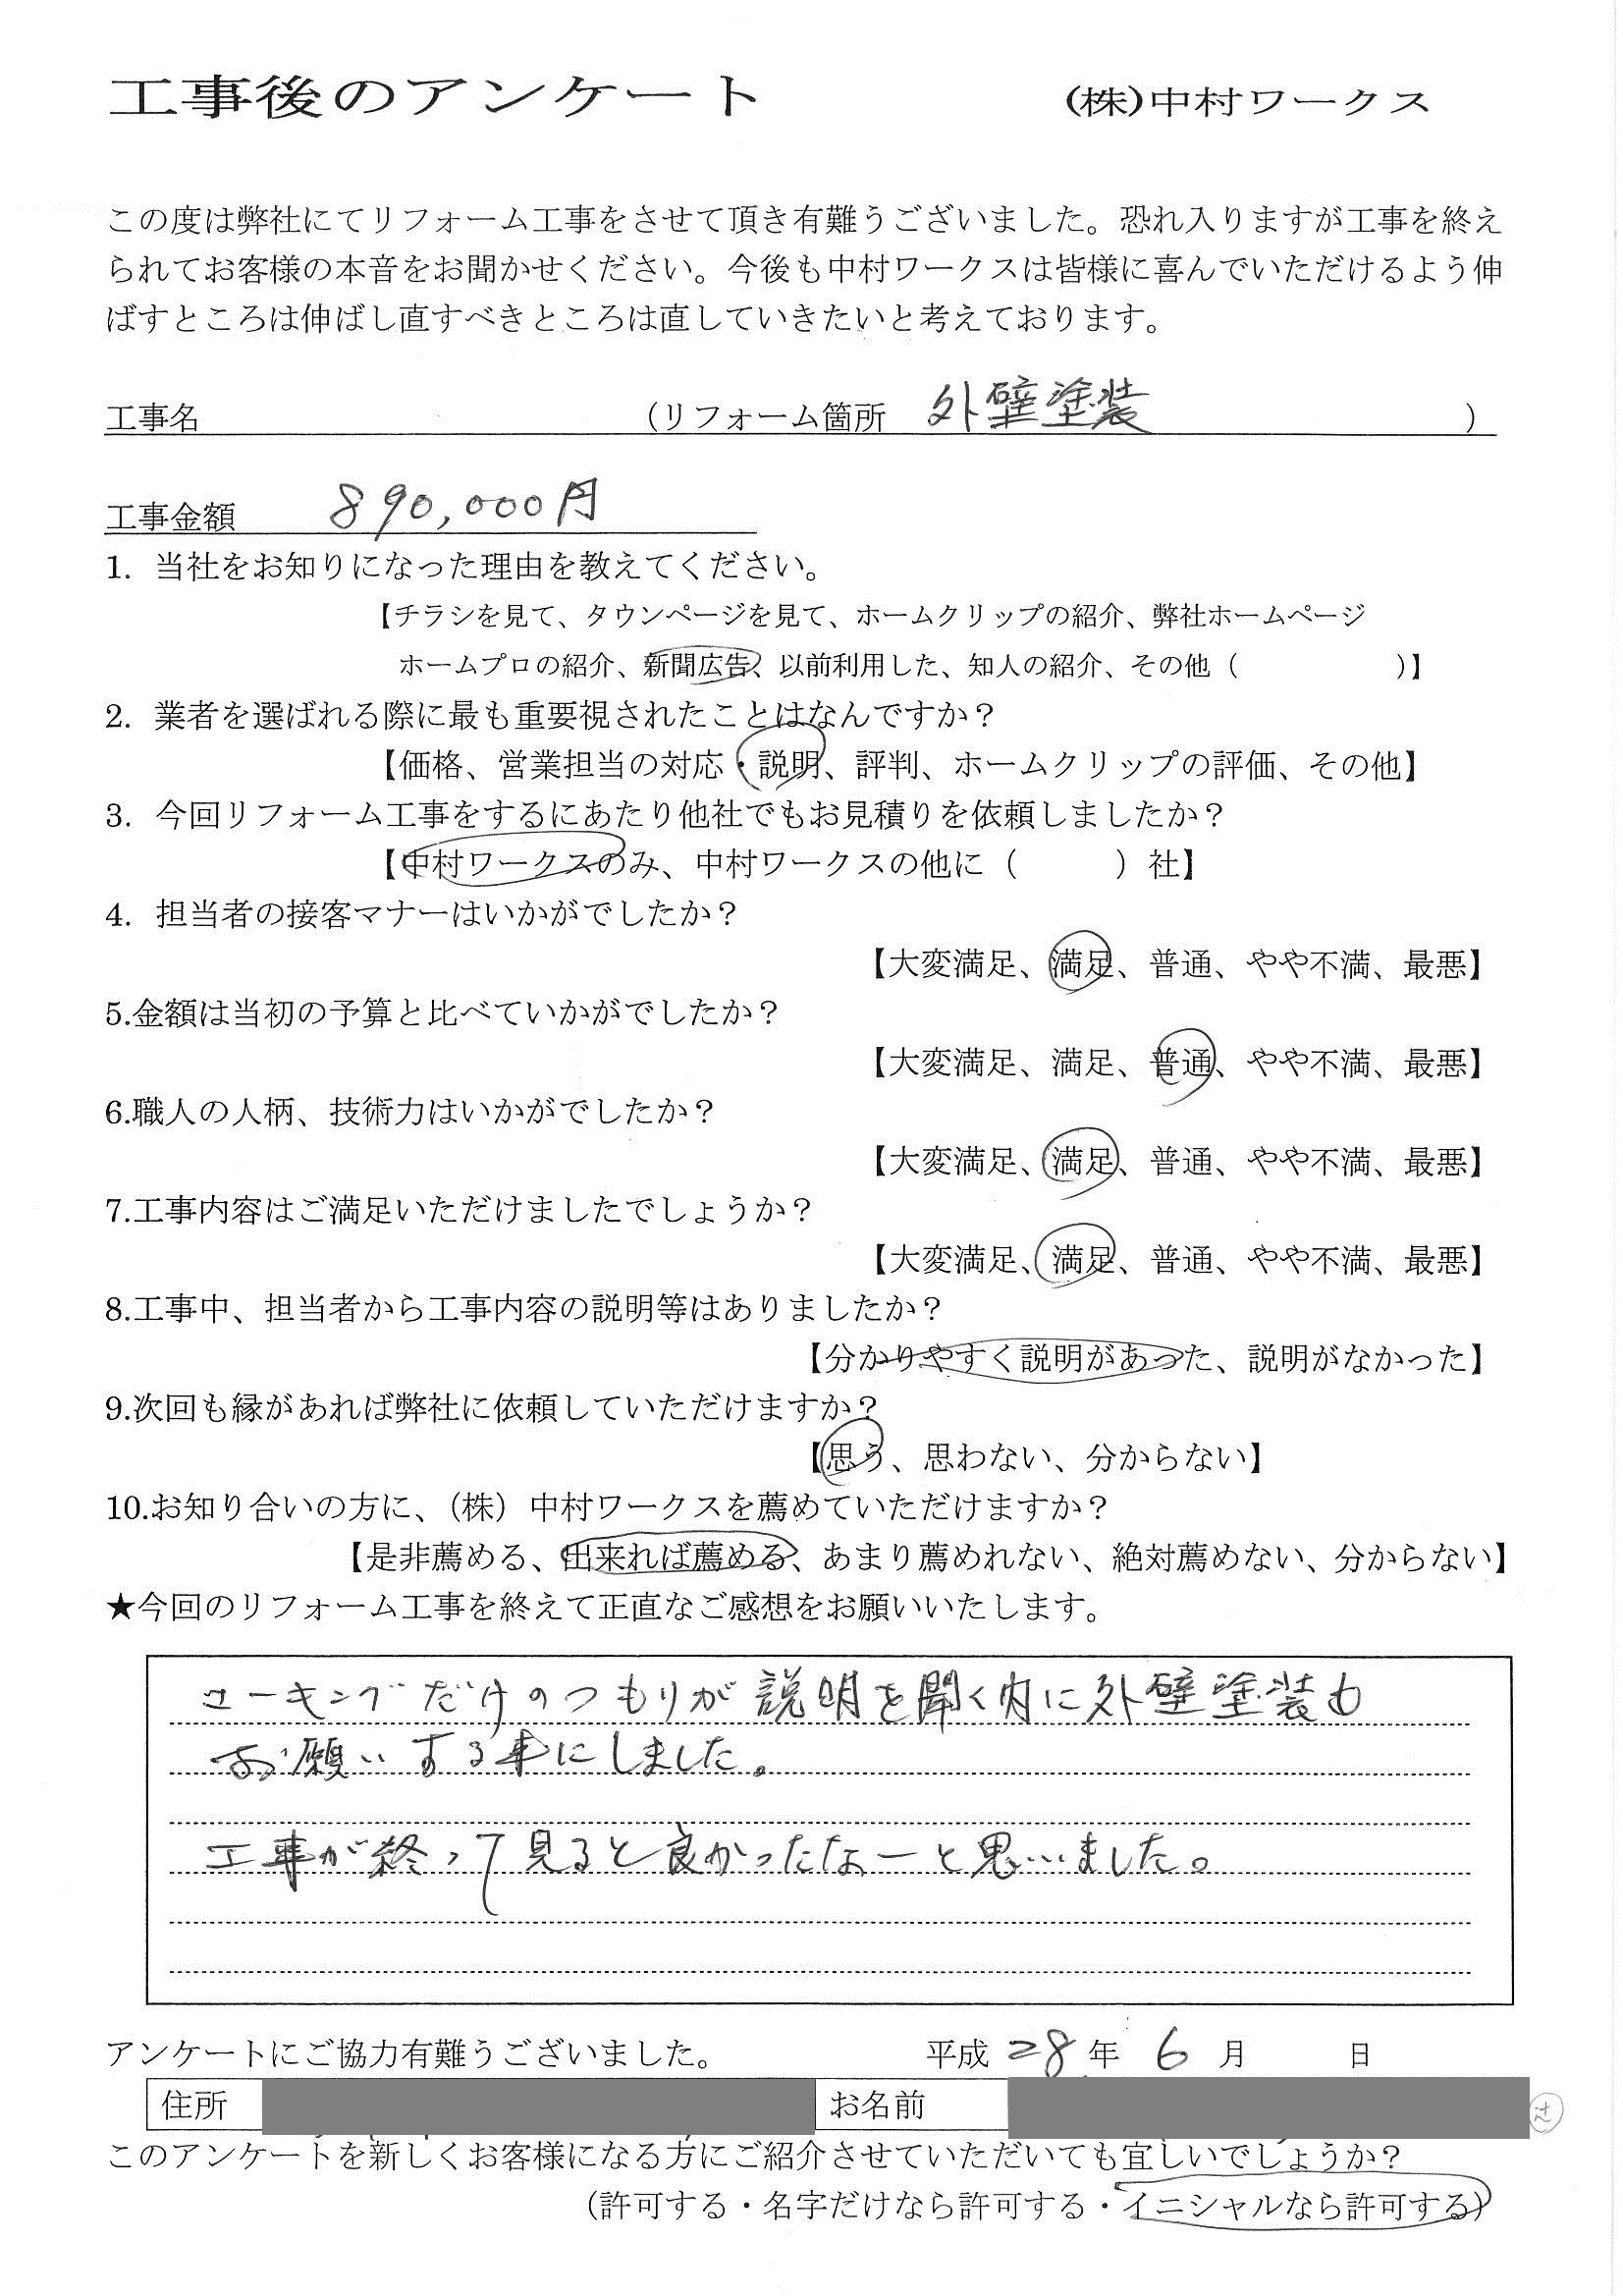 工事後のアンケート (株)中村ワークス
この度は弊社にてリフォーム工事をさせて頂き有難うございました。恐れ入りますが工事を終え
られてお客様の本音をお聞かせください。今後も中村ワークスは皆様に喜んでいただけるよう伸
ばすところは伸ばし直すべきところは直していきたいと考えております。
工事名 (リフォーム箇所 外壁塗装 )
工事金額 890,000円
1. 当社をお知りになった理由を教えてください。
【チラシを見て、タウンページを見て、ホームクリップの紹介、弊社ホームページ
ホームプロの紹介、新聞広告、以前利用した、知人の紹介、その他（ )】
2. 業者を選ばれる際に最も重要視されたことはなんですか？
【価格、営業担当の対応・説明、評判、ホームクリップの評価、その他】
3. 今回リフォーム工事をするにあたり他社でもお見積りを依頼しましたか？
【中村ワークスのみ、中村ワークスの他に（ ）社】
4. 担当者の接客マナーはいかがでしたか？
【大変満足、満足、普通、やや不満、最悪】
5.金額は当初の予算と比べていかがでしたか？
【大変満足、満足、普通、やや不満、最悪】
6.職人の人柄、技術力はいかがでしたか？
【大変満足、満足、普通、やや不満、最悪】
7.工事内容はご満足いただけましたでしょうか？
【大変満足、満足、普通、やや不満、最悪】
8.工事中、担当者から工事内容の説明等はありましたか？
【分かりやすく説明があった、説明がなかった】
9.次回も縁があれば弊社に依頼していただけますか？
【思う、思わない、分からない】
10.お知り合いの方に、（株）中村ワークスを薦めていただけますか？
【是非薦める、出来れば薦める、あまり薦めれない、絶対薦めない、分からない】
★今回のリフォーム工事を終えて正直なご感想をお願いいたします。
コーキングだけのつもりが説明を聞く内に外壁塗装も
お願いする事にしました。
工事が終って見ると良かったなーと思いました。
アンケートにご協力有難うございました。 平成 28 年 6 月 日
住所 お名前 辻
このアンケートを新しくお客様になる方にご紹介させていただいても宜しいでしょうか？
（許可する・名字だけなら許可する・イニシャルなら許可する）